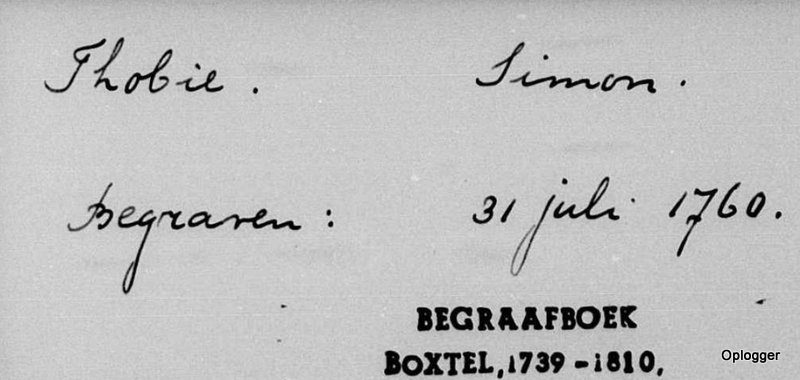 Thobie. Simon.
Begraven: 31 juli 1760.
BEGRAAFBOEK
BOXTEL, 1739 - 1810,
Oplogger